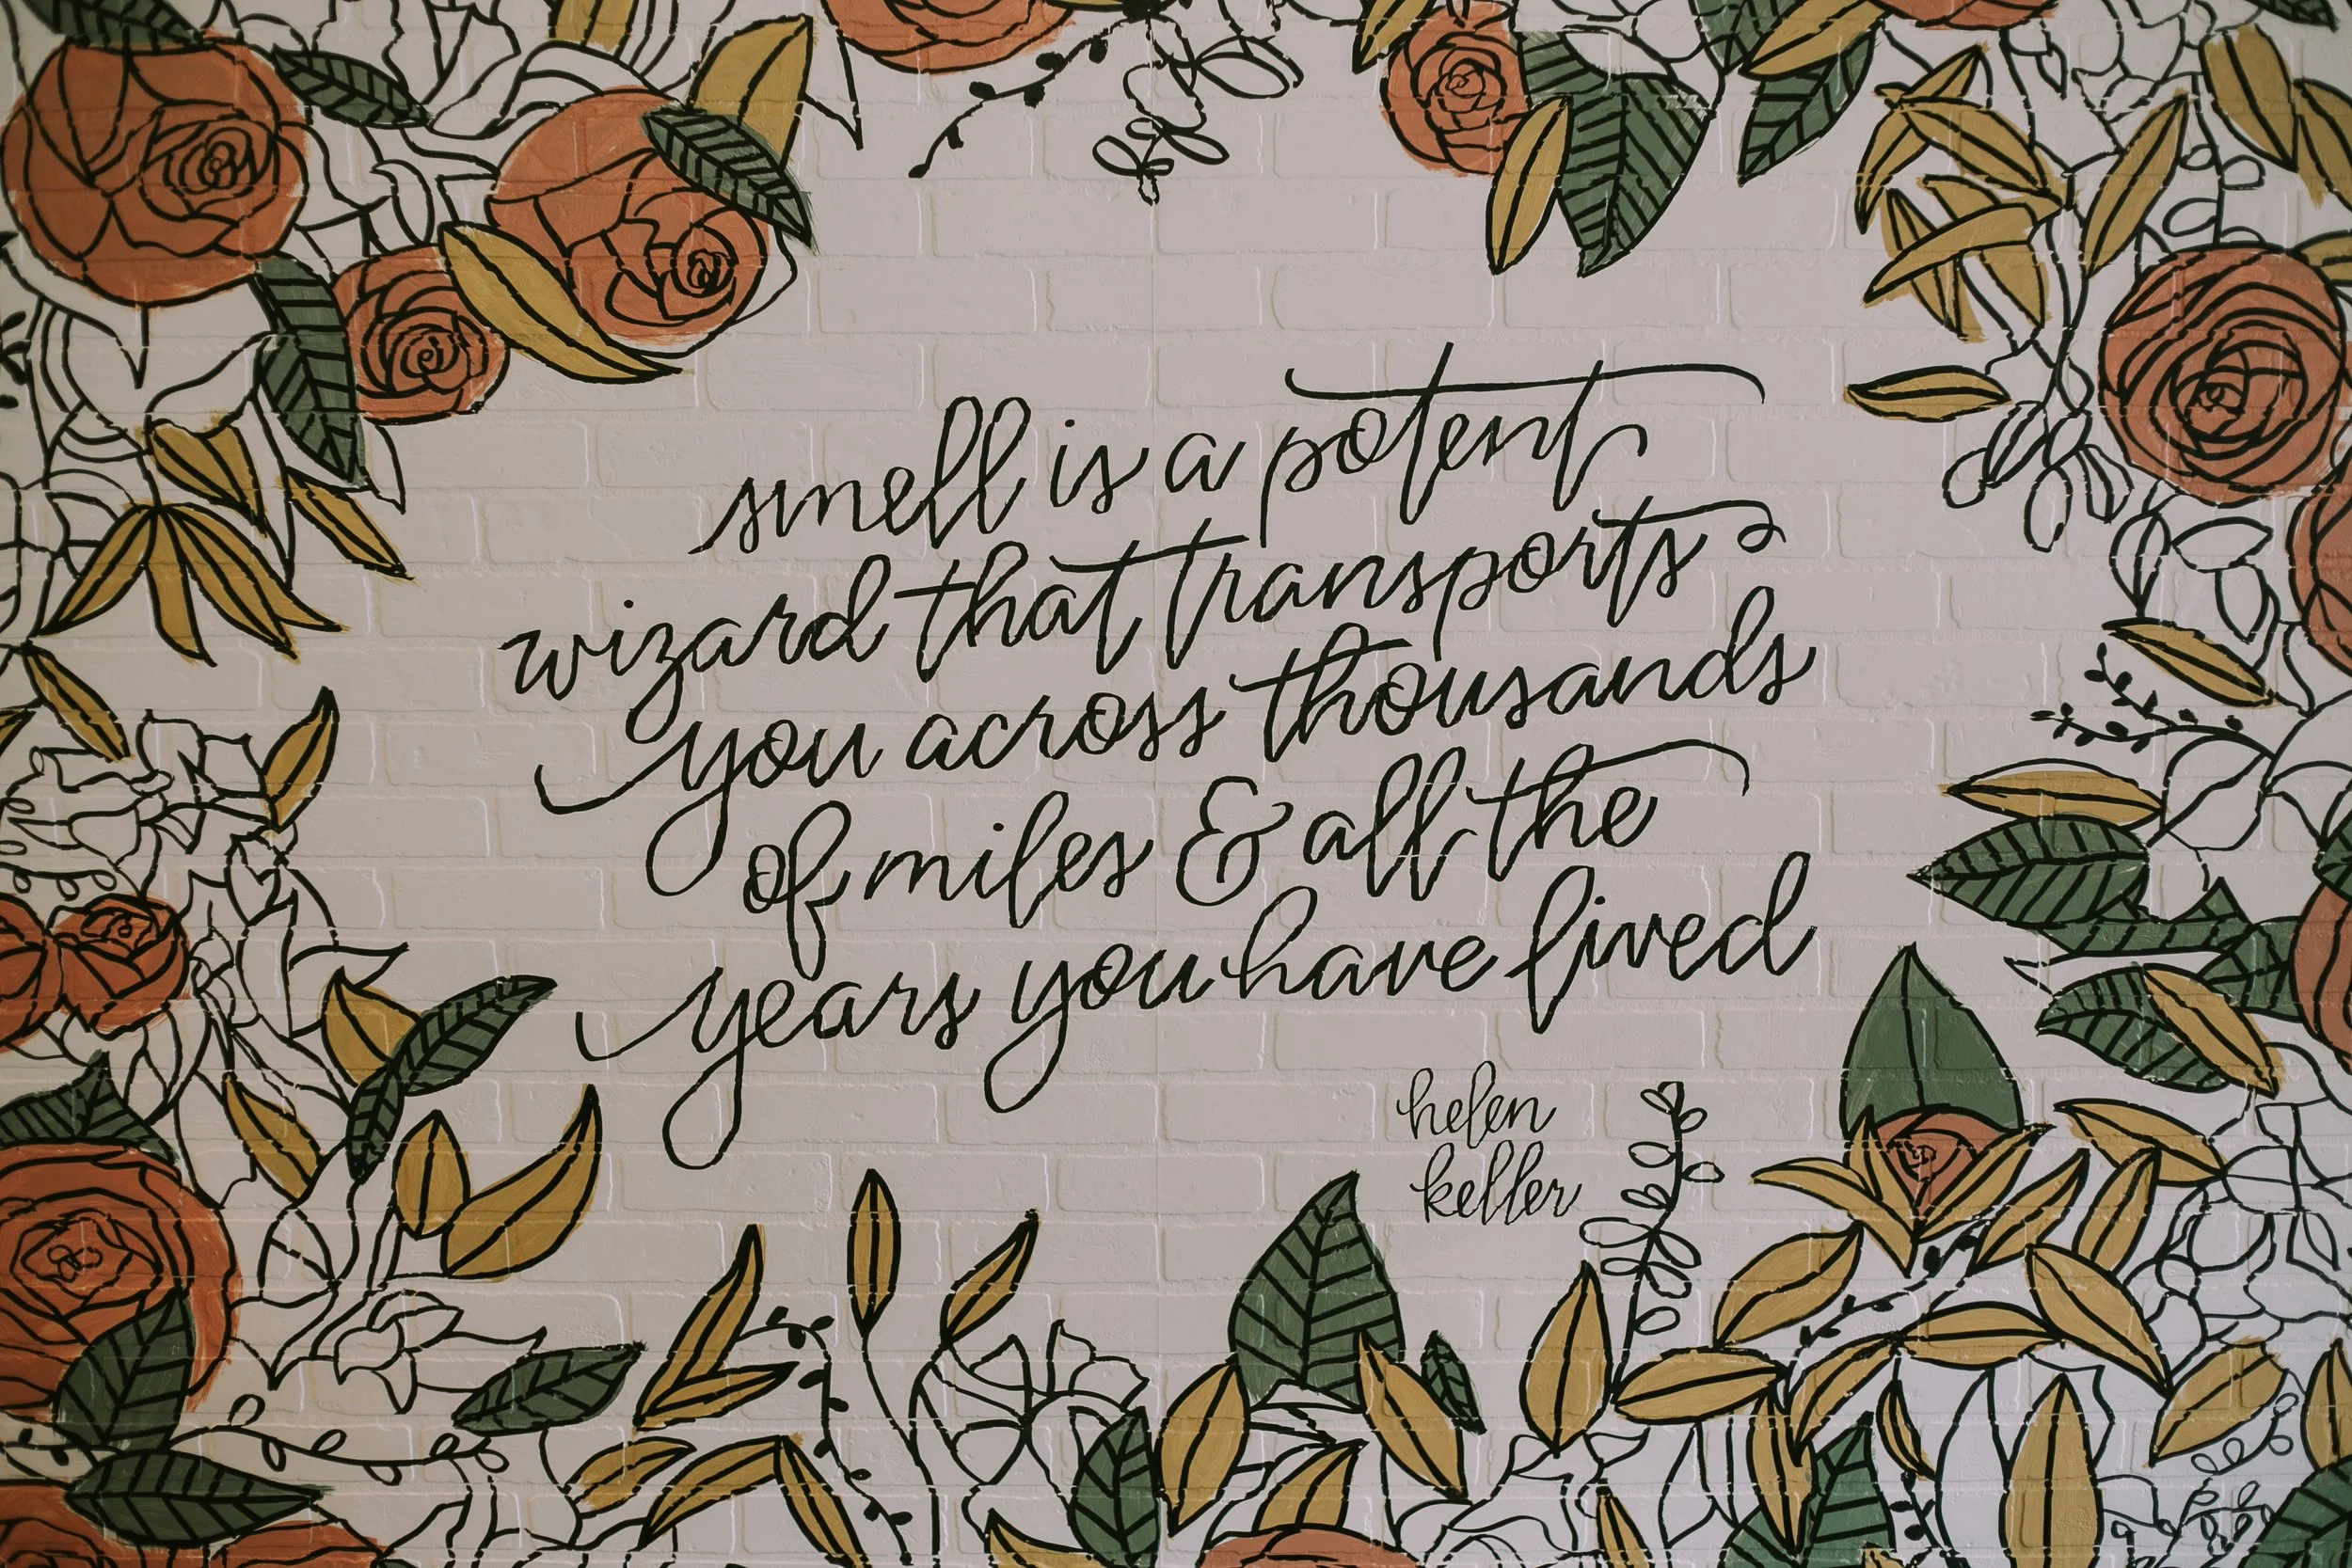 smell is a potent
wizard that transports
you across thousands
of miles & all the
years you have lived
helen
keller